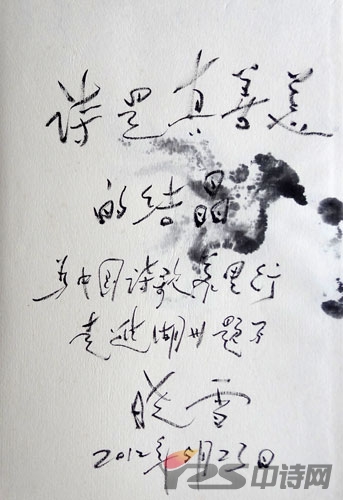 诗是真善美
的结晶
为中国诗歌万里行
走进州题
晓雪
2012年月23日
中诗网